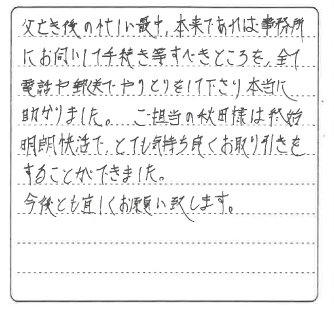 父亡き後の忙しい最中、本来であれば事務所
にお伺いして手続き等すべきところを、全て
電話や郵送でやりとりをして下さり本当に
助かりました。 ご担当の秋田様は終始
明朗快活で、とても気持ち良くお取り引きを
することができました。
今後とも宜しくお願い致します。